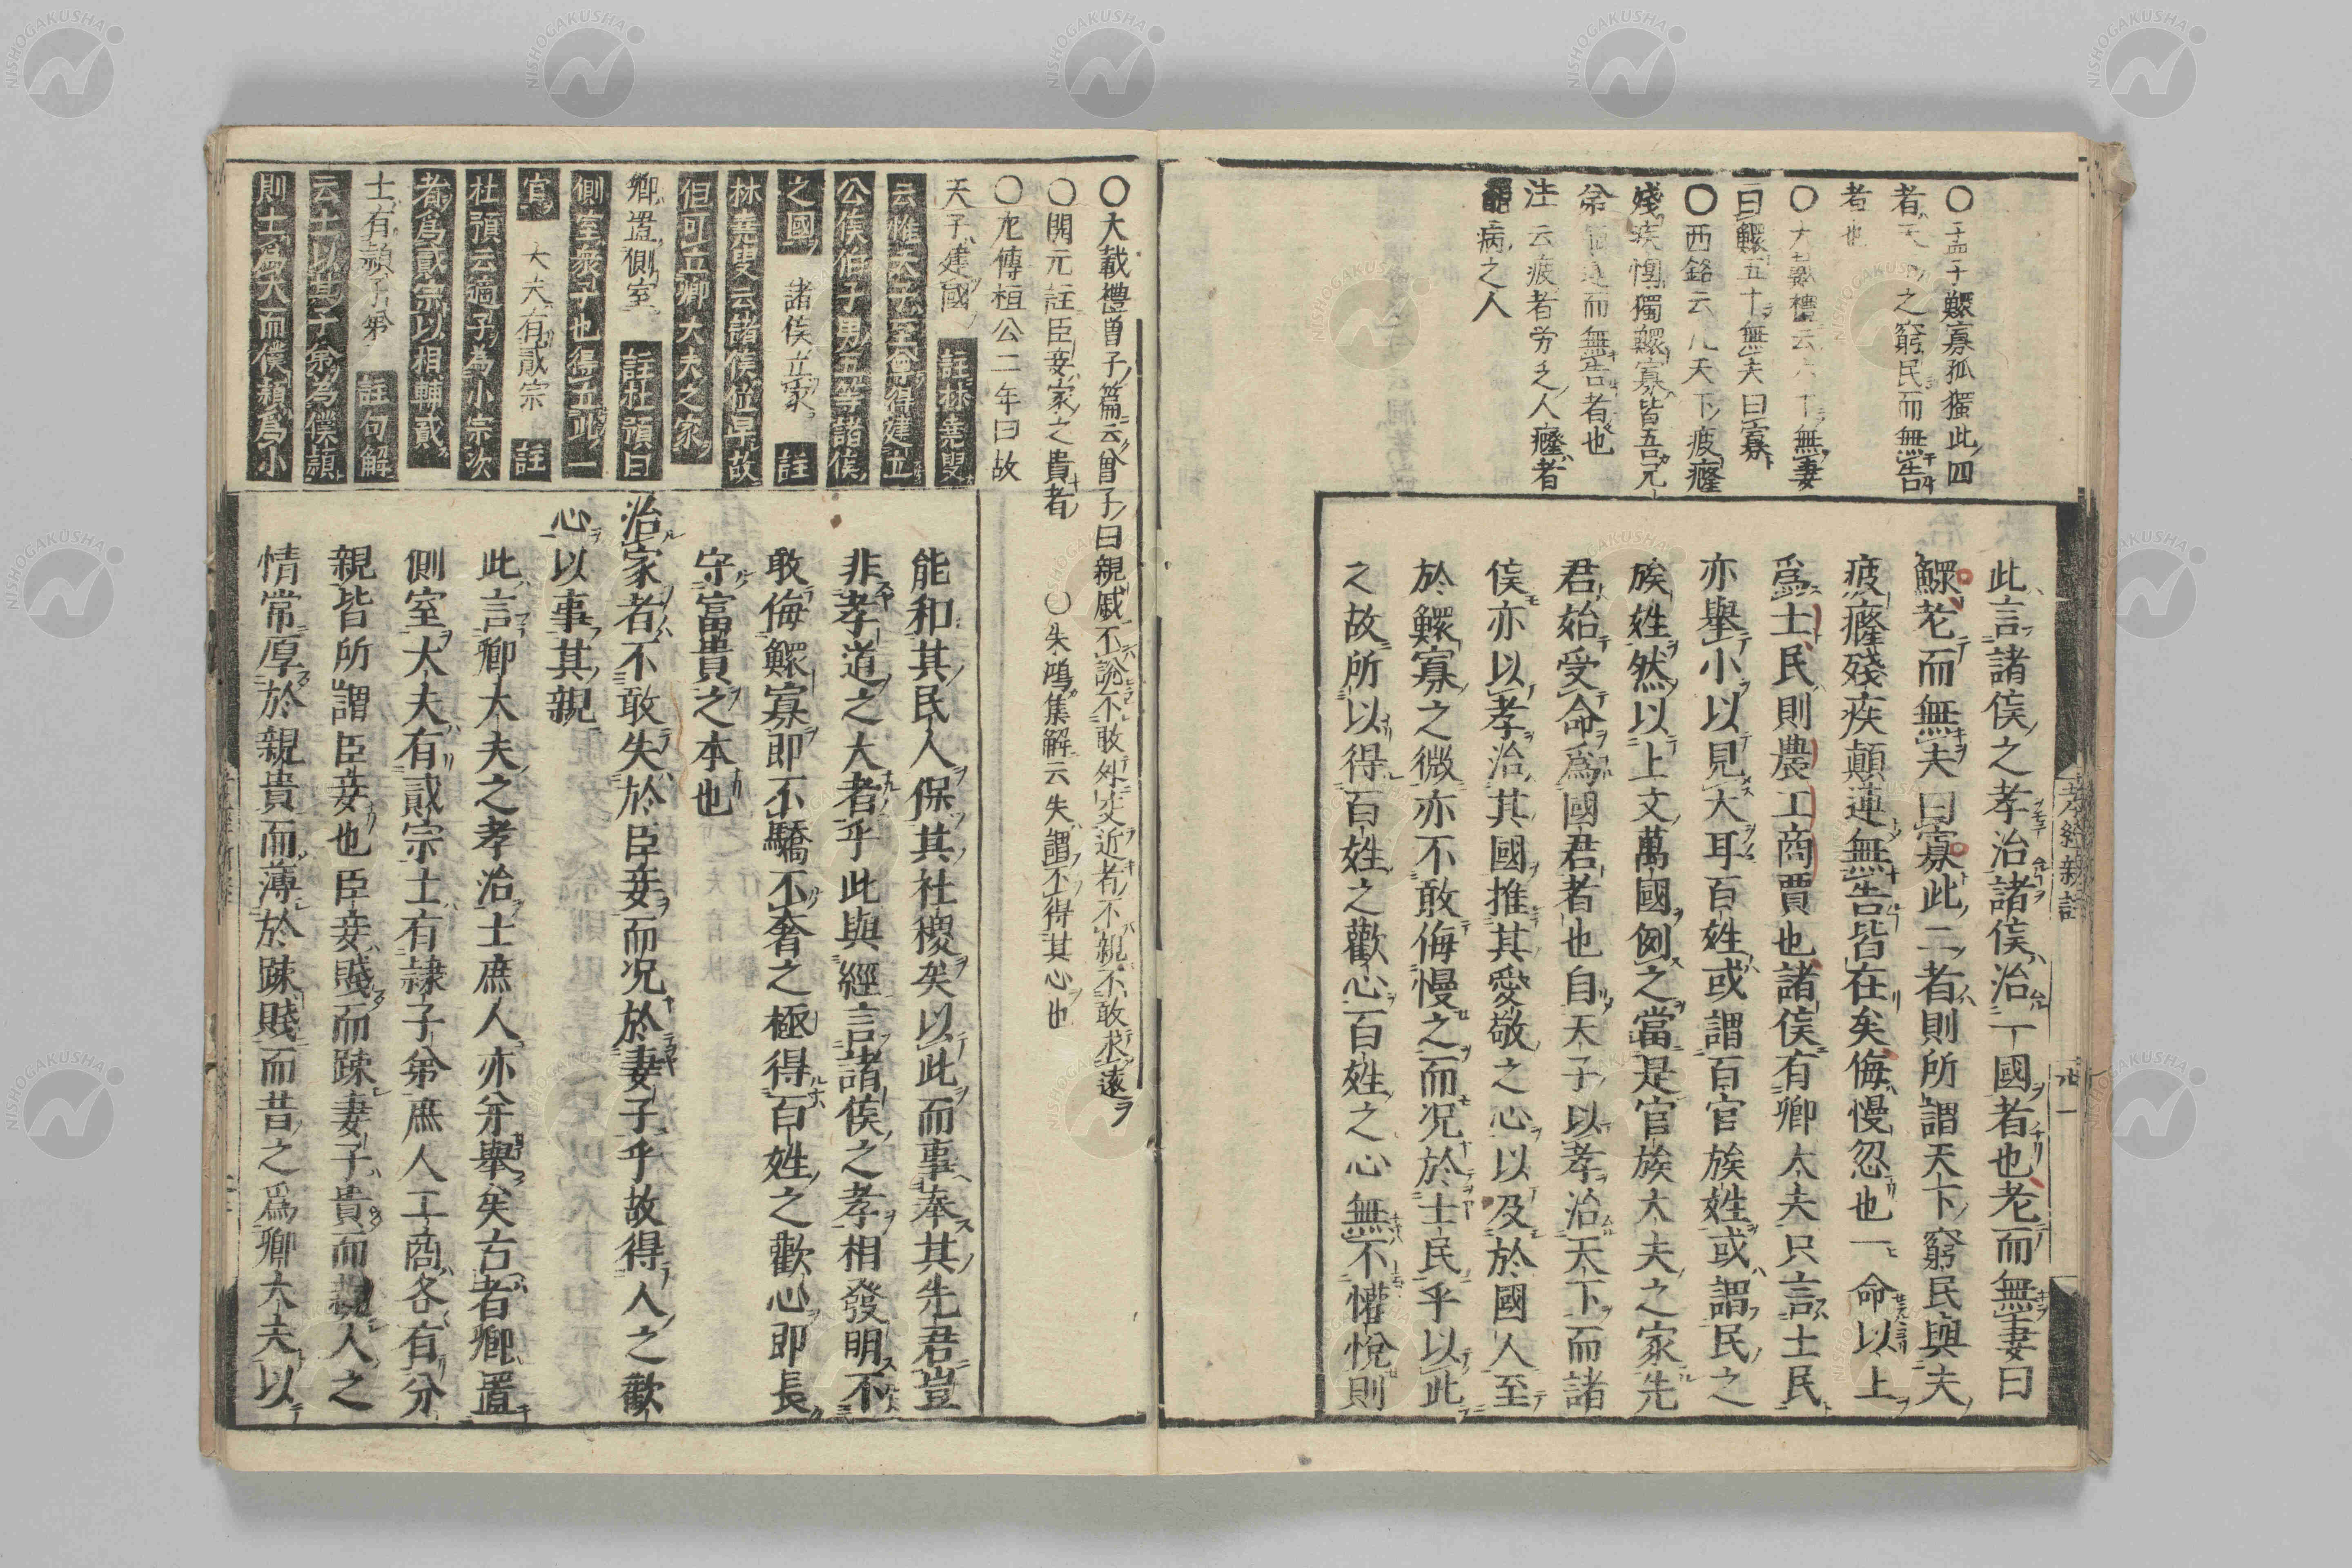 ○孟子鰥寡孤獨此四
者天下之窮民而無告
者也
○大戴禮云六十無妻
曰鰥五十無夫曰寡
○西銘云凡天下疲癃
殘疾惸獨鰥寡皆吾兄
弟顚連而無告者也
注云疲者労乏人癃者
罷病之人
此言諸侯之孝治諸侯治一國者也老而無妻曰
鰥老而無夫曰寡此二者則所謂天下窮民與夫
疲癃殘疾顛連無告皆在矣侮慢忽也一命以上
爲士民則農工商賈也諸侯有卿大夫只言士民
亦舉小以見大耳百姓或謂百官族姓或謂民之
族姓然以上文萬國例之當是官族大夫之家先
君始受命爲國君者也自天子以孝治天下而諸
侯亦以孝治其國推其愛敬之心以及於國人至
於鰥寡之微亦不敢侮慢之而况於士民乎以此
之故所以得百姓之歡心百姓之心無不懽悅則
孝經新註
○大戴禮曽子篇云曽子曰親戚不說不敢外交近者不親不敢求遠
○開元註臣妾家之貴者 ○朱鴻集解云失謂不得其心也
○左傳桓公二年曰故
天子建國 註林堯叟
云惟天子至尊得建立
公侯伯子男五等諸侯
之國 諸侯立家 註
林堯叟云諸侯位卑故
但可立卿大夫之家
卿置側室 註杜預曰
側室衆子也得立此一
官 大夫有貳宗 註
杜預云適子為小宗次
者爲貳宗以相輔貳
士有隷子弟 註句解
云士以其子弟為僕隷
則士為大而僕隷爲小
能和其民人保其社稷矣以此而事奉其先君豈
非孝道之大者乎此與經言諸侯之孝相發明不
敢侮鰥寡即不驕不奢之極得百姓之歡心即長
守富貴之本也
治家者不敢失於臣妾而况於妻子乎故得人之歡
心以事其親
此言卿大夫之孝治士庶人亦分舉矣古者卿置
側室大夫有貳宗士有隷子弟庶人工商各有分
親皆所謂臣妾也臣妾賤而踈妻子貴而親人之
情常厚於親貴而薄於踈賤而昔之爲卿大夫以